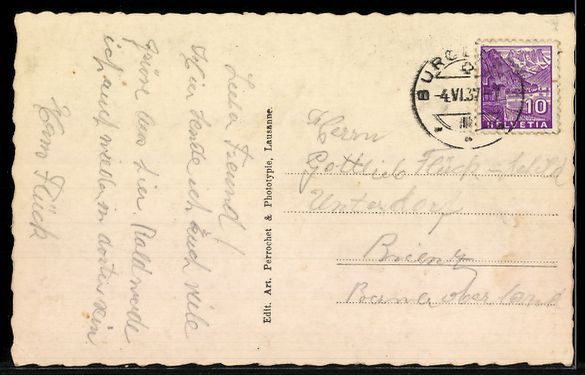 Lieber Freund!
Hier sende ich Euch viele
Grüsse von hier. Bald werde
ich auch wieder in dorten sein
Hans Flück
Edit. Art. Perrochet & Phototypie, Lausanne.
BURG
-4.VI.37
10
HELVETIA
Herrn
Gottlieb Flück-
Unterdorf
Brienz
Berneroberland